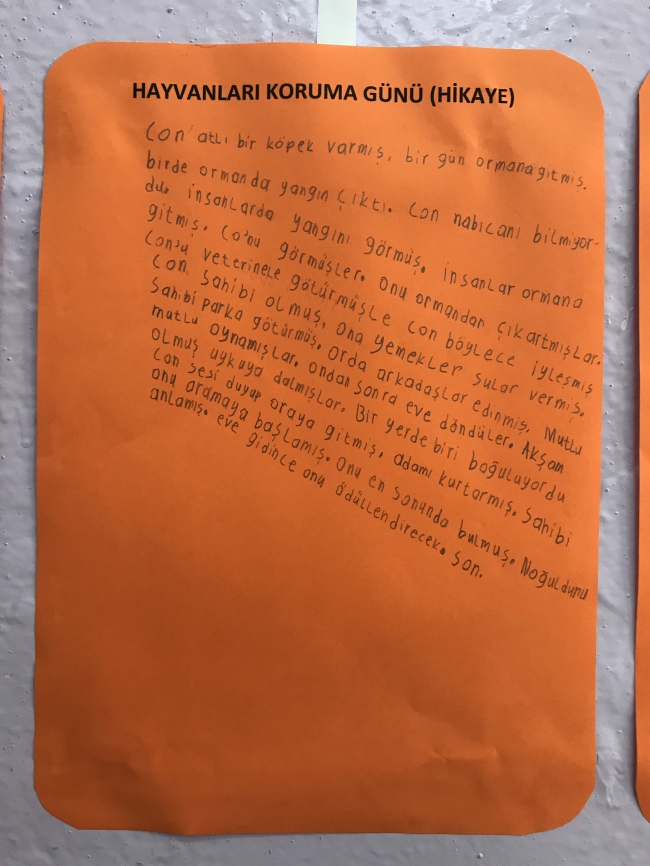 HAYVANLARI KORUMA GÜNÜ (HİKAYE)
Con' atlı bir köpek varmış, bir gün ormana gitmiş.
birde ormanda yangın çıktı. Con nabıcanı bilmiyor-
du. insanlarda yangını görmüş. insanlar ormana
gitmiş. Co'nu görmüşler. Onu ormandan çıkartmışlar.
Con'u veterinele götürmüşle con böylece iyleşmiş
Con. Sahibi olmuş. Ona yemekler sular vermiş.
Sahibi parka götürmüş. Orda arkadaşlar edinmiş. Mutlu
mutlu oynamışlar. ondan sonra eve döndüler. Akşam
olmuş uykuya dalmışlar. Bir yerde biri boğuluyordu
Con sesi duyup oraya gitmiş. adamı kurtarmış. Sahibi
onu aramaya başlamış. Onu en sonunda bulmuş. Noğuldunu
anlamış. eve gidince onu ödüllendirecek. Son.